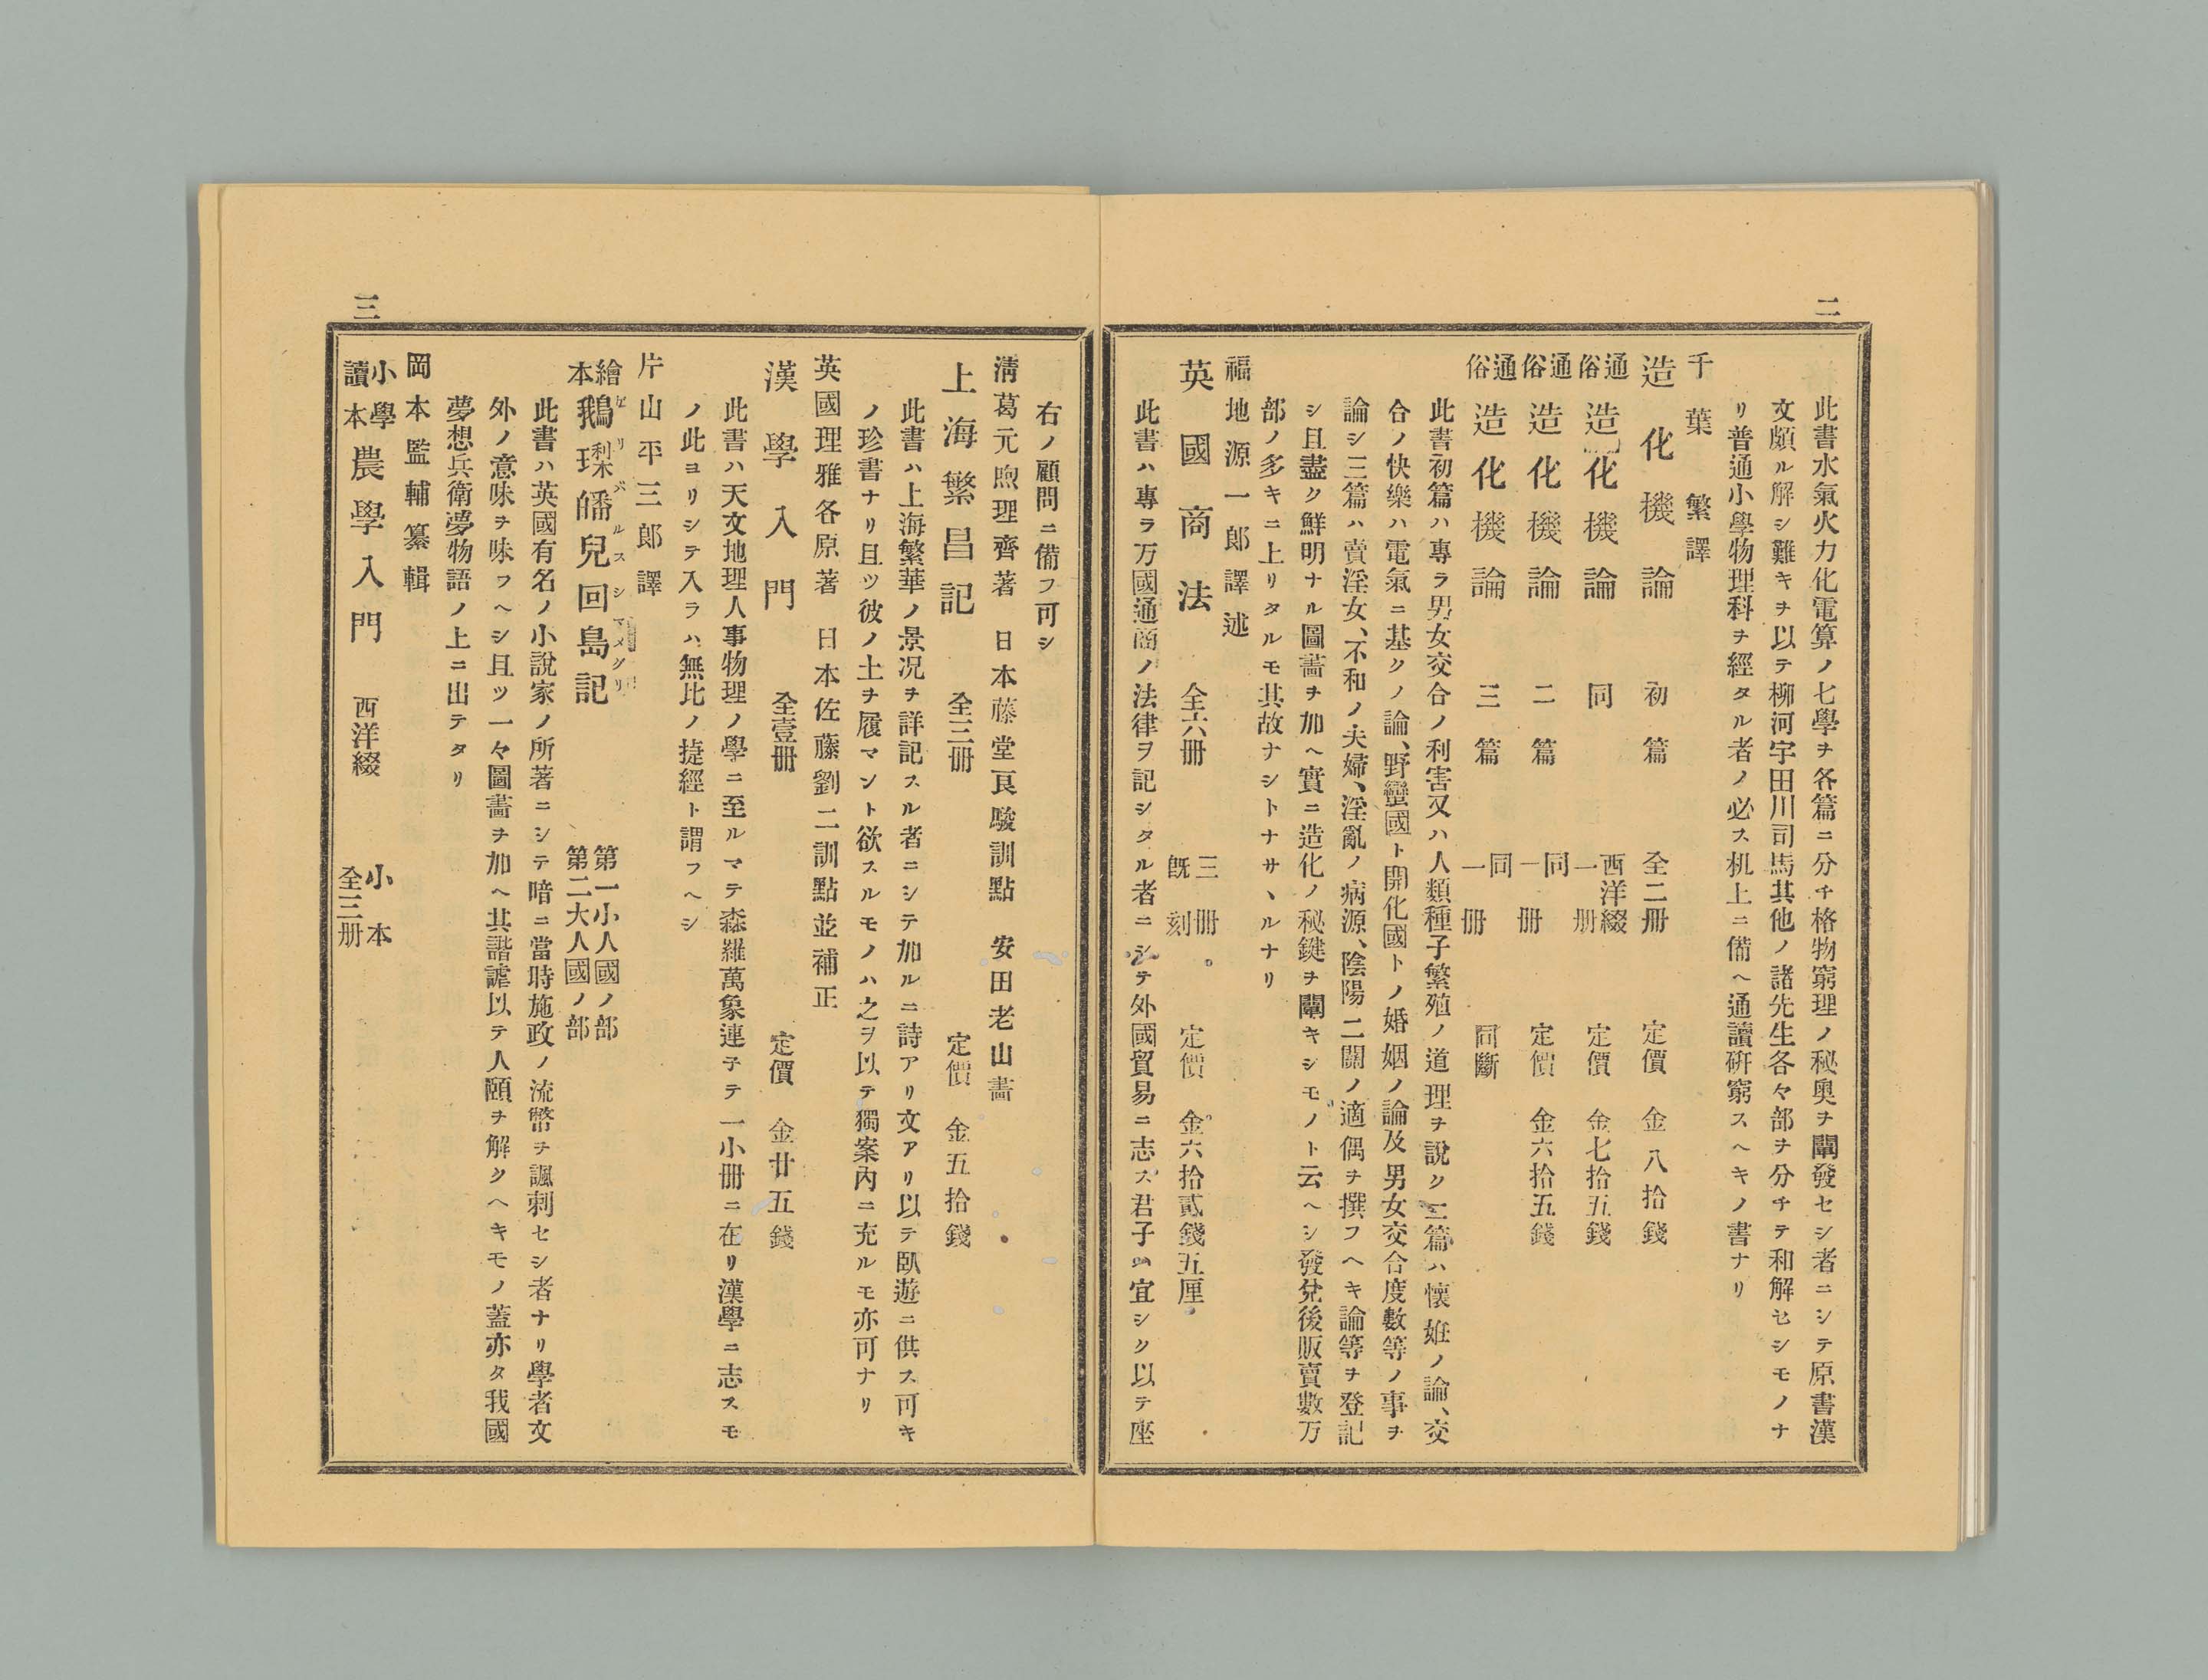 二
此書水氣火力化電算ノ七學ヲ各篇ニ分チ格物窮理ノ秘奧ヲ闡發セシ者ニシテ原書漢
文頗ル解シ難キヲ以テ柳河宇田川司馬其他ノ諸先生各々部ヲ分チテ和解セシモノナ
リ普通小學物理科ヲ經タル者ノ必ス机上ニ備ヘ通讀硏窮スヘキノ書ナリ
千葉繁譯
造化機論 初篇 全二冊 定價 金八拾錢
通俗 造化機論 同 西洋綴一冊 定價 金七拾五錢
通俗 造化機論 二篇 同一冊 定價 金六拾五錢
通俗 造化機論 三篇 同一冊 同斷
此書初篇ハ專ラ男女交合ノ利害又ハ人類種子繁殖ノ道理ヲ說ク二篇ハ懷姙ノ論、交
合ノ快樂ハ電氣ニ基クノ論、野蠻國ト開化國トノ婚姻ノ論及男女交合度數等ノ事ヲ
論シ三篇ハ賣淫女、不和ノ夫婦、淫亂ノ病源、陰陽二關ノ適偶ヲ撰フヘキ論等ヲ登記
シ且盡ク鮮明ナル圖畵ヲ加ヘ實ニ造化ノ秘鍵ヲ闡キシモノト云ヘシ發兌後販賣數万
部ノ多キニ上リタルモ其故ナシトナサヽルナリ
福地源一郎譯述
英國商法 全六冊 三冊既刻。 定價 金六拾貳錢五厘。
此書ハ專ラ万國通商ノ法律ヲ記シタル者ニシテ外國貿易ニ志ス君子ハ宜シク以テ座
右ノ顧問ニ備フ可シ
清葛元煦理齊著 日本藤堂良駿訓點 安田老山畵
上海繁昌記 全三冊 定價 金五拾錢
此書ハ上海繁華ノ景況ヲ詳記スル者ニシテ加ルニ詩アリ文アリ以テ臥遊ニ供ス可キ
ノ珍書ナリ且ツ彼ノ土ヲ履マント欲スルモノハ之ヲ以テ獨案內ニ充ルモ亦可ナリ
英國理雅各原著 日本佐藤劉二訓點並補正
漢學入門 全壹冊 定價 金廿五錢
此書ハ天文地理人事物理ノ學ニ至ルマテ森羅萬象連子テ一小冊ニ在リ漢學ニ志スモ
ノ此ヨリシテ入ラハ無比ノ捷經ト謂フヘシ
片山平三郎譯
繪本 鵞瓈皤兒回島記 第一小人國ノ部 第二大人國ノ部
此書ハ英國有名ノ小說家ノ所著ニシテ暗ニ當時施政ノ流幣ヲ諷刺セシ者ナリ學者文
外ノ意味ヲ味フヘシ且ツ一々圖畵ヲ加ヘ其諧謔以テ人頤ヲ解クヘキモノ蓋亦タ我國
夢想兵衛夢物語ノ上ニ出テタリ
岡本監輔纂輯
小學讀本 農學入門 西洋綴 小本全三冊
三